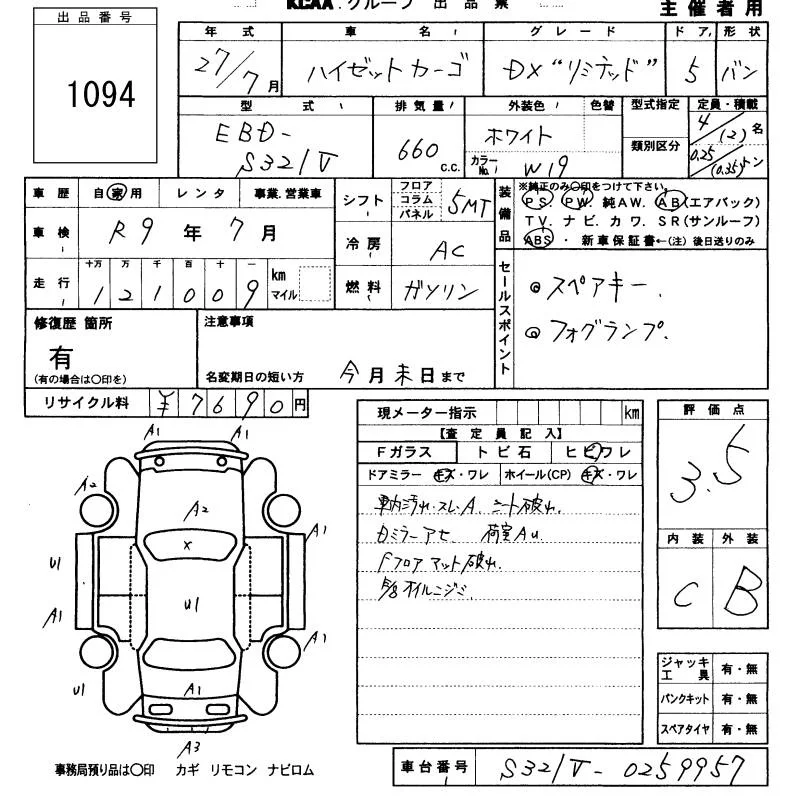 KCAA.グループ 出品票
主催者用
出品番号
1094
年式 車名 グレード ドア 形状
27/7月 ハイゼットカーゴ DX "リミテッド" 5 バン
型式 排気量 外装色 色替 型式指定 定員・積載
EBD-
S321V
660 c.c.
ホワイト
カラーNo. W19
類別区分
4 (2)名
0.25 (0.35)トン
車歴 自家用 レンタ 事業.営業車
車検 R9年7月
走行 十万 万 千 百 十 一
121009 km マイル
シフト フロア コラム パネル 5MT
冷房 AC
燃料 ガソリン
装備品
※純正のみ〇印をつけて下さい。
PS. PW. 純AW. AB(エアバック)
TV. ナビ. カワ. SR(サンルーフ)
ABS・新車保証書←(注)後日送りのみ
セールスポイント
スペアキー.
フォグランプ.
修復歴 箇所
有
(有の場合は〇印を)
注意事項
名変期日の短い方 今月末日まで
リサイクル料 ¥7690円
現メーター指示 km
【査定員記入】
Fガラス トビ石 ヒビワレ
ドアミラー キズ・ワレ ホイール(CP) キズ・ワレ
車内汚れ・スレ.A. シート破れ.
Dミラーアセ. 荷室AU.
Fフロアマット破れ.
オイルニジミ
評価点
3.5
内装 外装
C B
ジャッキ工具 有・無
パンクキット 有・無
スペアタイヤ 有・無
A1 A1
A2
A2
A1
X
U1
U1
A1
A1
U1
A1
A3
事務局預り品は〇印 カギ リモコン ナビロム
車台番号 S321V-0259957